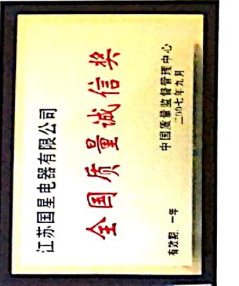 江苏国星电器有限公司
全国质量诚信奖
有效期：一年
中国质量监督管理中心
二〇〇七年九月